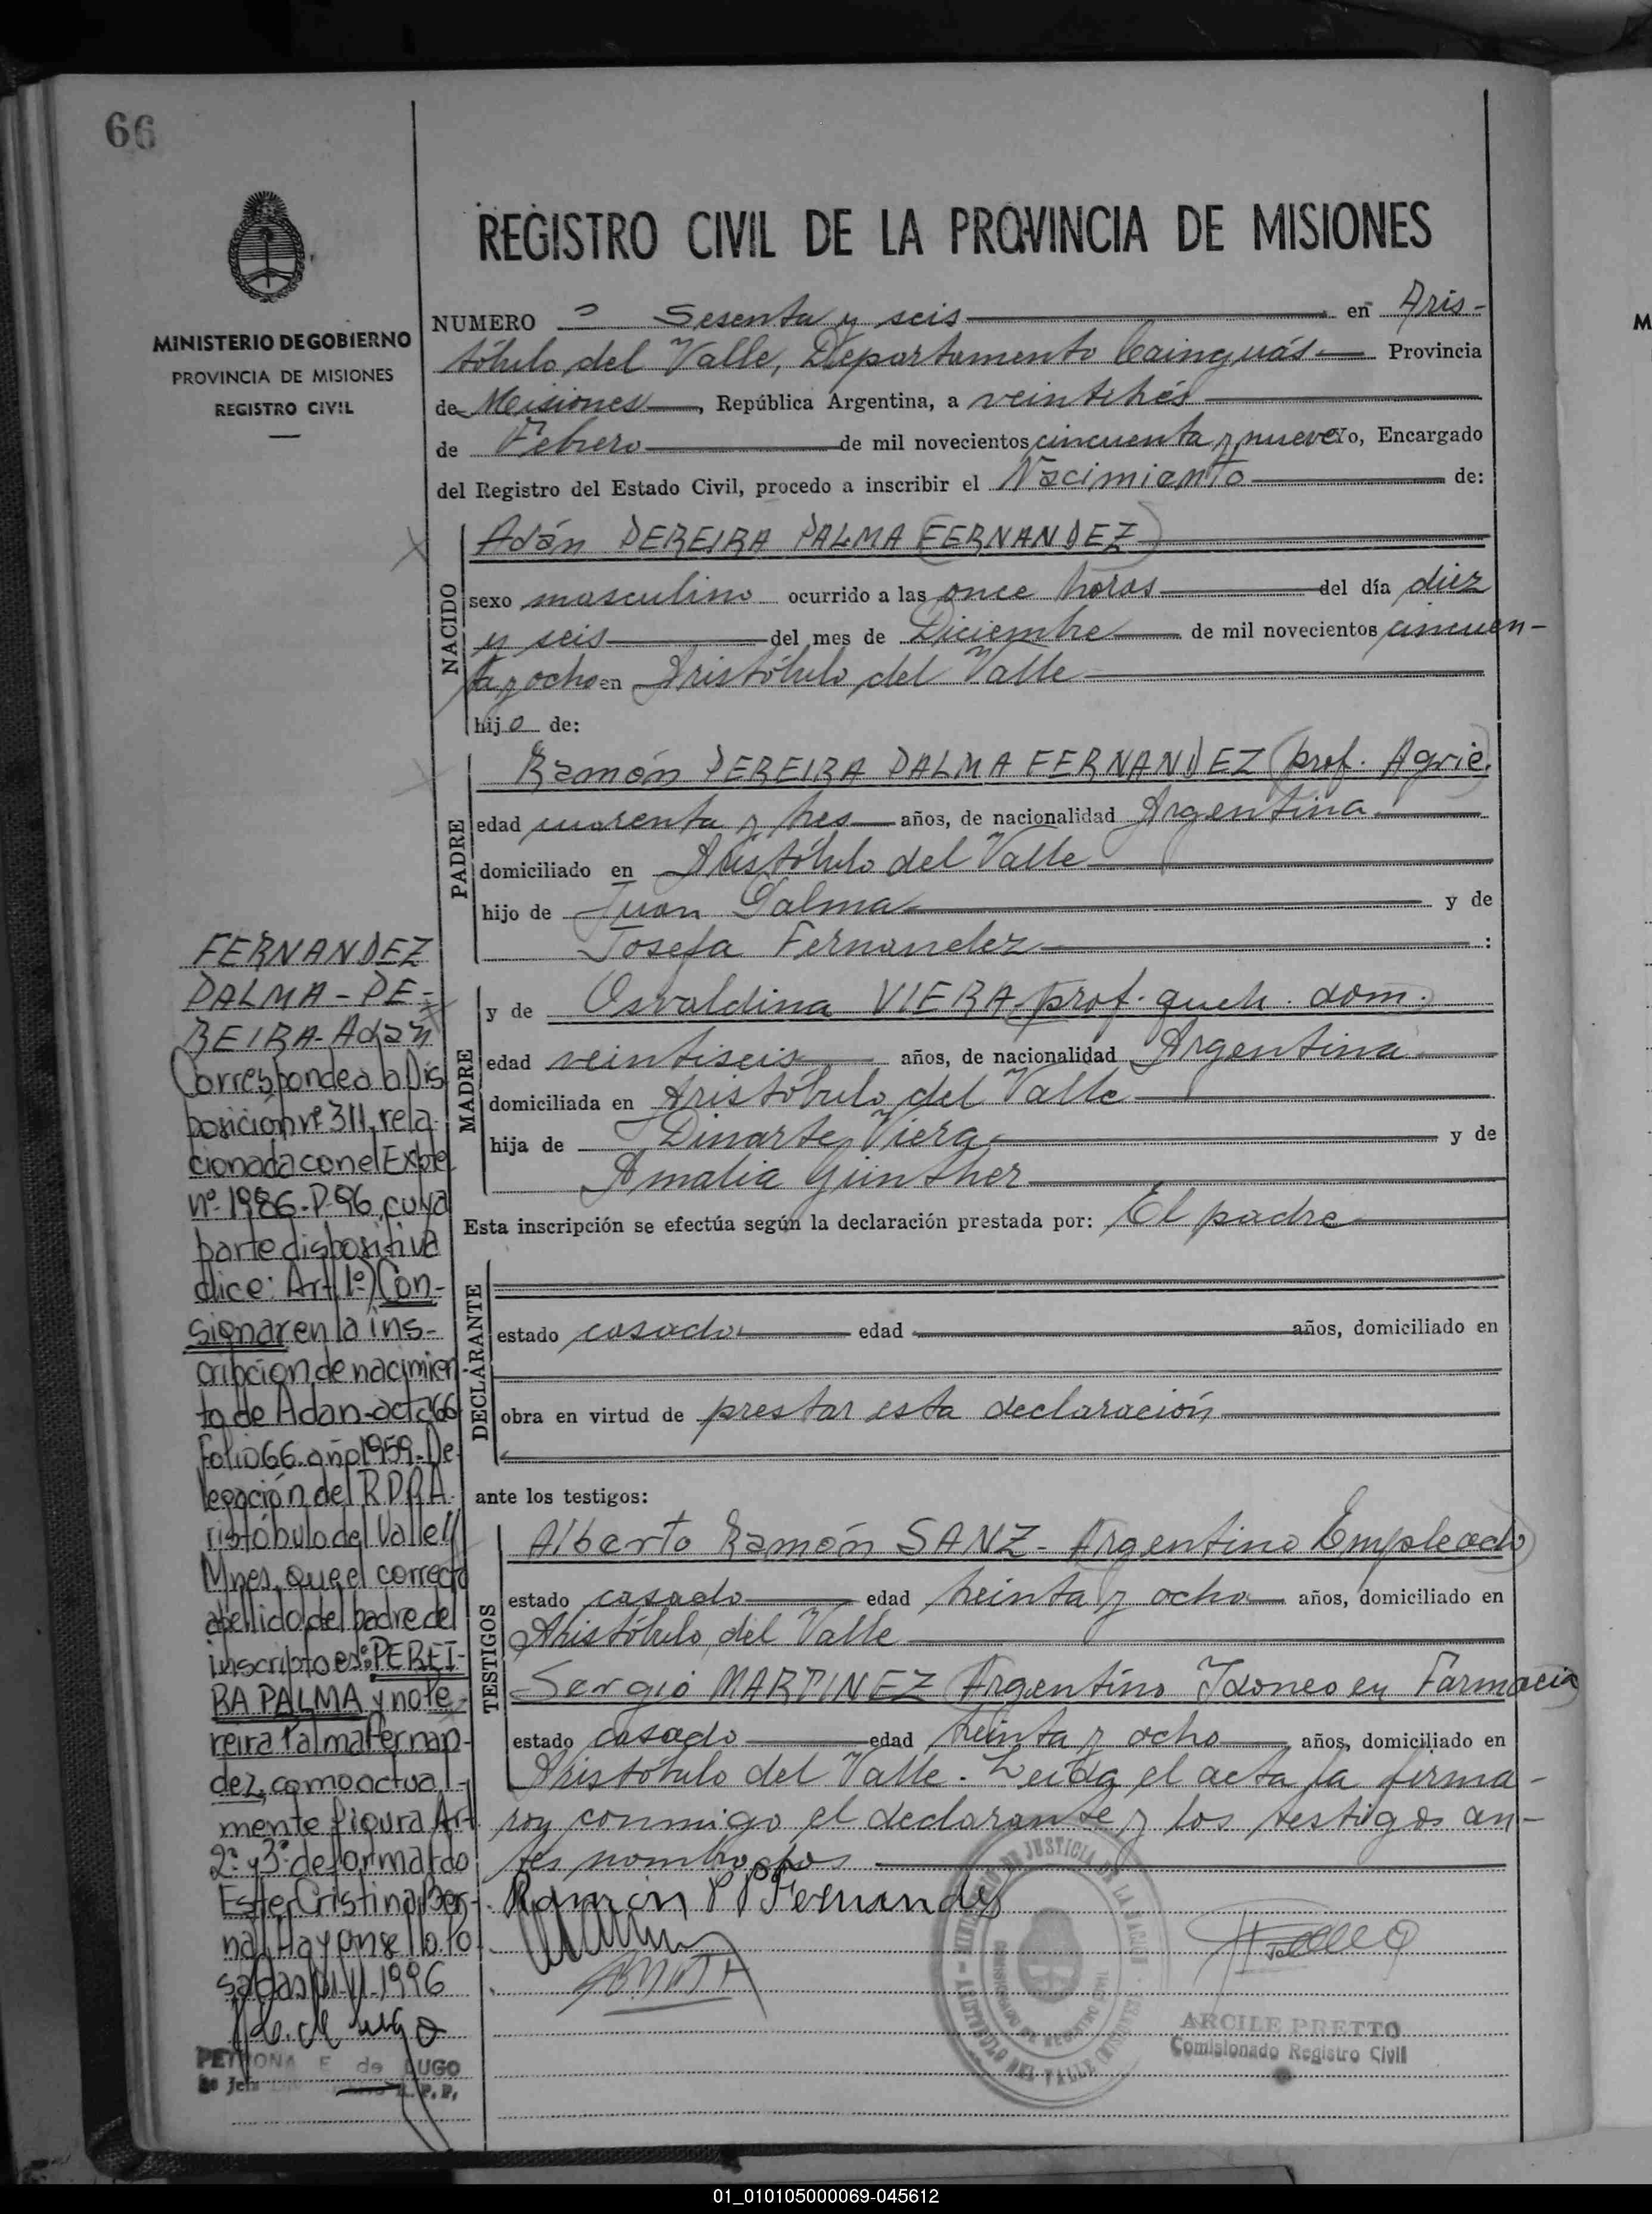 66
REGISTRO CIVIL DE LA PROVINCIA DE MISIONES
MINISTERIO DE GOBIERNO
PROVINCIA DE MISIONES
REGISTRO CIVIL
NUMERO Sesenta y seis en Aris-
tóbulo del Valle, Departamento Cainguás Provincia
de Misiones, República Argentina, a veintitrés
de Febrero de mil novecientos cincuenta y nueve Yo, Encargado
del Registro del Estado Civil, procedo a inscribir el Nacimiento de:
NACIDO
Adán PEREIRA PALMA (FERNANDEZ)
sexo masculino ocurrido a las once horas del día diez
y seis del mes de Diciembre de mil novecientos cincuen-
ta y ocho en Aristóbulo del Valle
hijo de:
PADRE
Ramón PEREIRA PALMA FERNANDEZ (prof. Agric.)
edad cuarenta y tres años, de nacionalidad Argentina
domiciliado en Aristóbulo del Valle
hijo de Juan Palma y de
Josefa Fernandez :
MADRE
y de Osvaldina VIERA (prof. queh. dom.)
edad veintiseis años, de nacionalidad Argentina
domiciliada en Aristóbulo del Valle
hija de Dinarte Viera y de
Amalia Günther
Esta inscripción se efectúa según la declaración prestada por: El padre
DECLARANTE
estado casado edad años, domiciliado en
obra en virtud de prestar esta declaración
ante los testigos:
TESTIGOS
Alberto Ramón SANZ - Argentino Empleado)
estado casado edad treinta y ocho años, domiciliado en
Aristóbulo del Valle
Sergio MARTINEZ (Argentino Idoneo en Farmacia)
estado casado edad treinta y ocho años, domiciliado en
Aristóbulo del Valle. Leída el acta la firma-
ron conmigo el declarante y los testigos an-
tes nombrados
Ramón P P Fernandez
ARCILE PRETTO
Comisionado Registro Civil
FERNANDEZ
PALMA - PE-
REIRA - Adán
Corresponde a la Dis
posición nº 311, rela
cionada con el Expte
nº 1986-P-96, cuya
parte dispositiva
dice: Art. 1º) Con-
signar en la ins-
cripción de nacimien
to de Adan-acta 66
folio 66. año 1959-De
legación del R.P.P.A
ristóbulo del Valle
Mnes, que el correcto
apellido del padre del
inscripto es: PEREI-
RA PALMA y no Pe
reira Palma Fernan-
dez, como actual-
mente figura Art
2º y 3º de forma fdo
Ester Cristina Ber-
nal Po
sadas VI 1996
PETRONA E. de LUGO
01_010105000069-045612